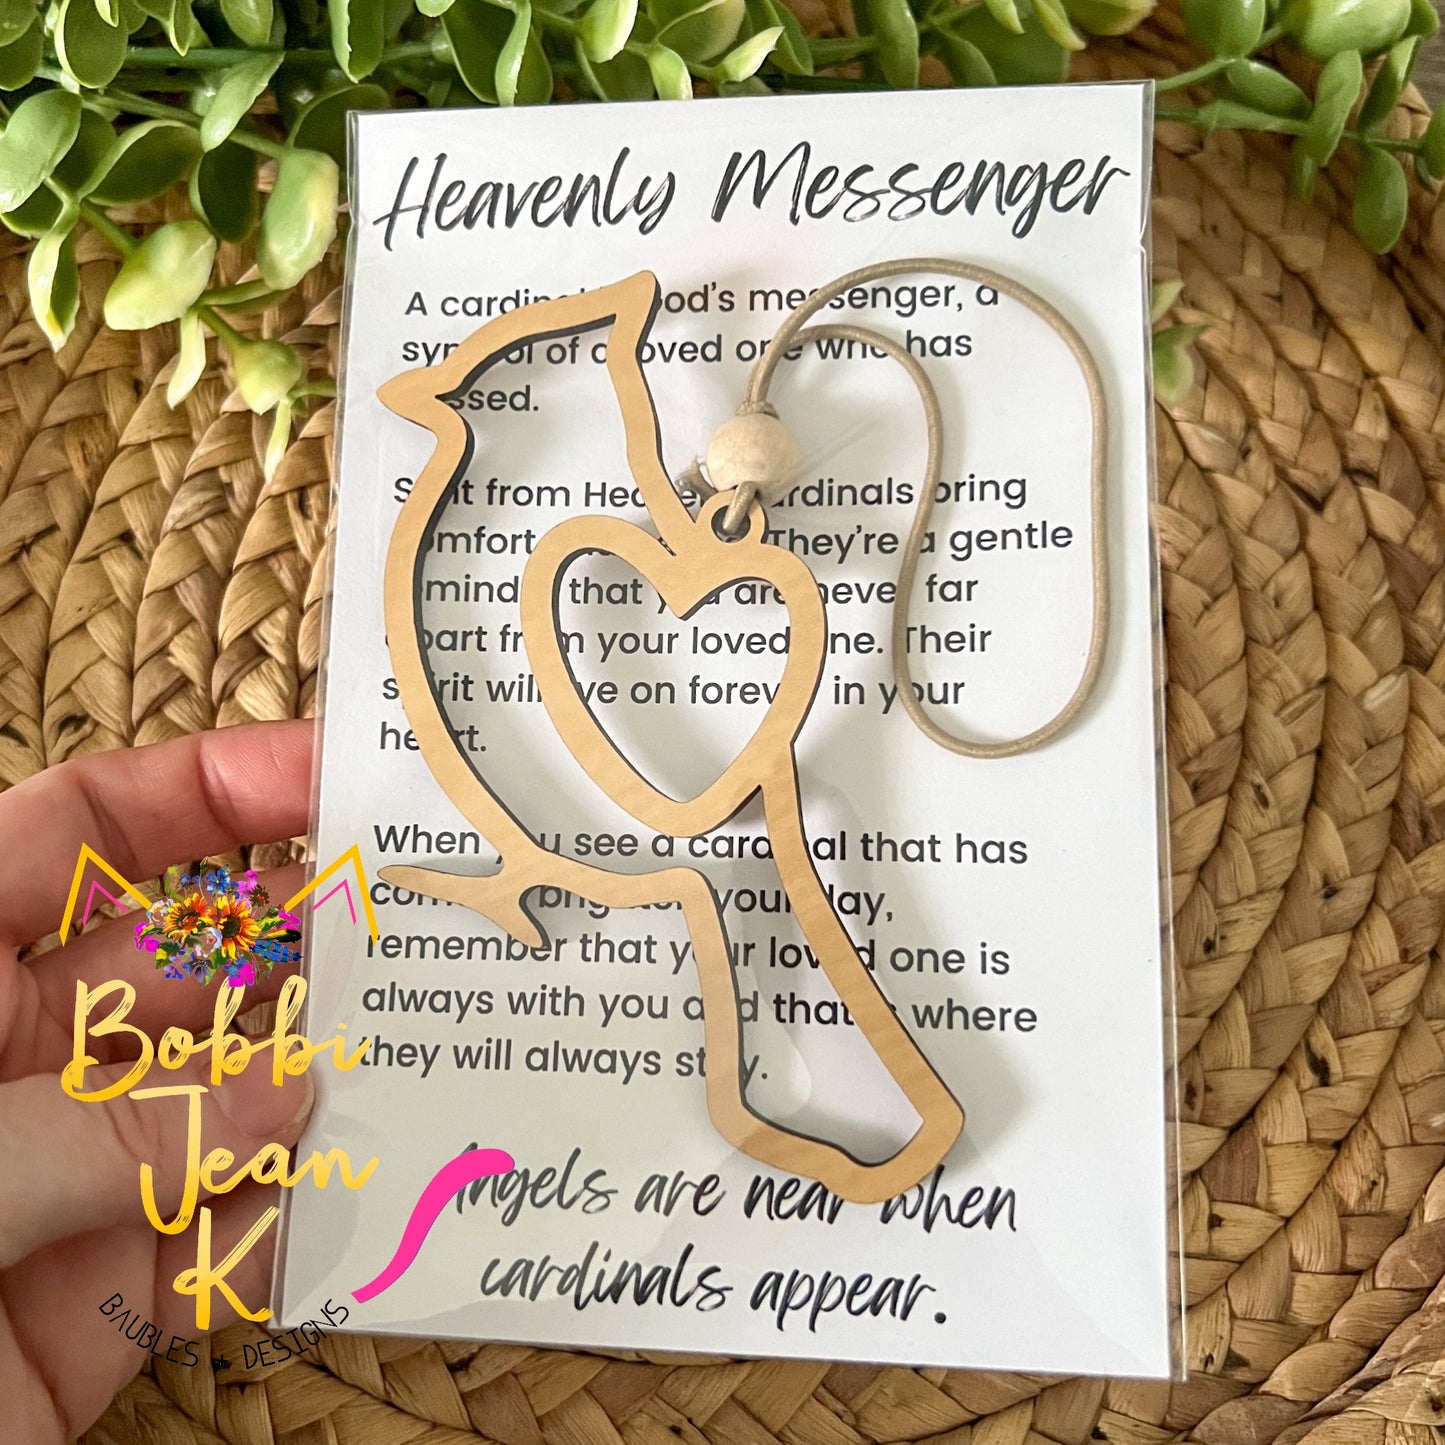 Heavenly Messenger
A cardinal is God's messenger, a
symbol of a loved one who has
passed.
Spirit from Heaven, cardinals bring
comfort They're a gentle
reminder that you are never far
apart from your loved one. Their
spirit will live on forever in your
heart.
When you see a cardinal that has
come brighten your day,
remember that your loved one is
always with you and that's where
they will always stay.
Angels are near when
cardinals appear.
Bobbi
Jean
K
BAUBLES + DESIGNS